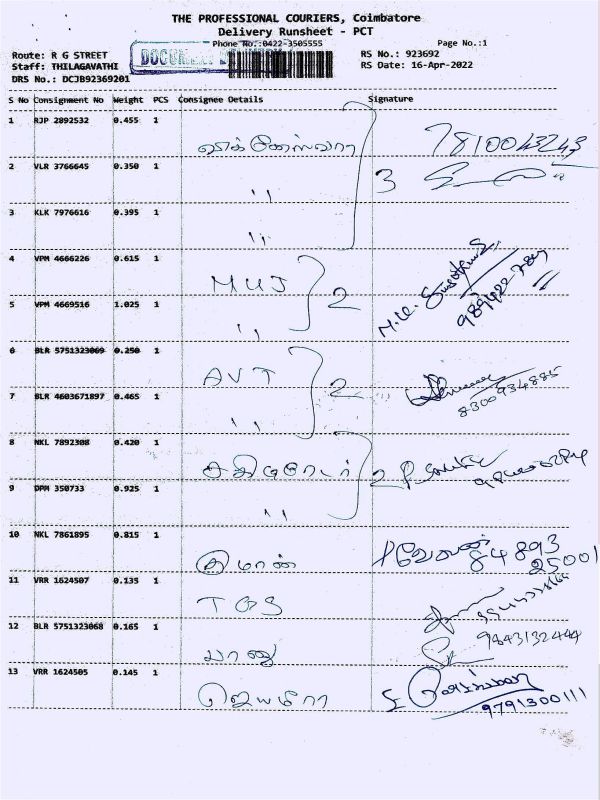 THE PROFESSIONAL COURIERS, Coimbatore
Delivery Runsheet - PCT
Phone No.:0422-3505555 Page No.:1
Route: R G STREET RS No.: 923692
Staff: THILAGAVATHI DOCUMENT RS Date: 16-Apr-2022
DRS No.: DCJB92369201
S No Consignment No Weight PCS Consignee Details Signature
1 RJP 2892532 0.455 1 7810043243
2 VLR 3766645 0.350 1 " 3
3 KLK 7976616 0.395 1 "
4 VPM 4666226 0.615 1 MUJ 2
5 VPM 4669516 1.025 1 "
6 BLR 5751323069 0.250 1 AVT 2
7 BLR 4603671897 0.465 1 " 8300934885
8 NKL 7892308 0.420 1 2
9 DPM 350733 0.925 1 "
10 NKL 7861895 0.815 1 இமான் 84893
25001
11 VRR 1624507 0.135 1 TOS
12 BLR 5751323068 0.165 1 பானு 9843132444
13 VRR 1624505 0.145 1 ஜெயமீரா 9791300111